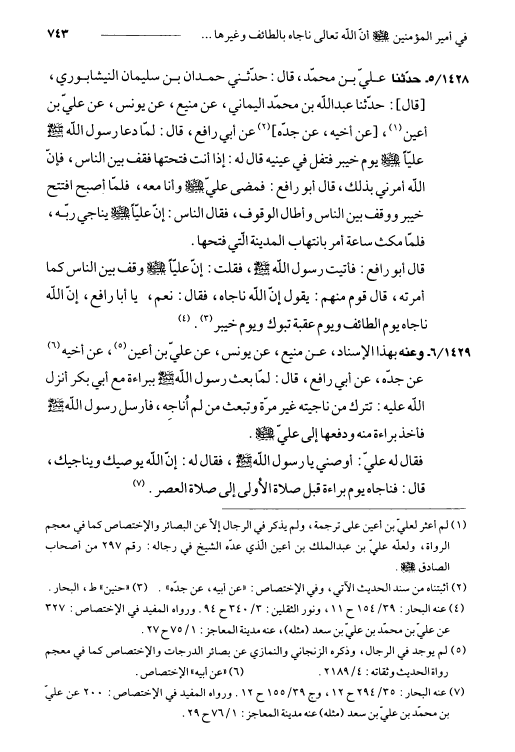 في أمير المؤمنين ﷺ أنّ الله تعالى ناجاه بالطائف وغيرها ... ٧٤٣
٥/١٤٢٨. حدّثنا عليّ بن محمّد، قال: حدّثني حمدان بن سليمان النيشابوري،
[قال]: حدّثنا عبدالله بن محمّد اليماني، عن منيع، عن يونس، عن عليّ بن
أعين (١)، [عن أخيه، عن جدّه] (٢) عن أبي رافع، قال: لمّا دعا رسول الله ﷺ
عليّاً ﷺ يوم خيبر فتفل في عينيه قال له: إذا أنت فتحتها فقف بين الناس، فإنّ
الله أمرني بذلك، قال أبو رافع: فمضى عليّ ﷺ وأنا معه، فلمّا أصبح افتتح
خيبر ووقف بين الناس وأطال الوقوف، فقال الناس: إنّ عليّاً ﷺ يناجي ربّه،
فلمّا مكث ساعة أمر بانتهاب المدينة الّتي فتحها.
قال أبو رافع: فأتيت رسول الله ﷺ، فقلت: إنّ عليّاً ﷺ وقف بين الناس كما
أمرته، قال قوم منهم: يقول إنّ الله ناجاه، فقال: نعم، يا أبا رافع، إنّ الله
ناجاه يوم الطائف ويوم عقبة تبوك ويوم خيبر (٣). (٤)
٦/١٤٢٩. وعنه بهذا الإسناد، عن منيع، عن يونس، عن عليّ بن أعين (٥)، عن أخيه (٦)
عن جدّه، عن أبي رافع، قال: لمّا بعث رسول الله ﷺ ببراءة مع أبي بكر أنزل
الله عليه: تترك من ناجيته غير مرّة وتبعث من لم أُناجِه، فأرسل رسول الله ﷺ
فأخذ براءة منه ودفعها إلى عليّ ﷺ.
فقال له عليّ: أوصني يا رسول الله ﷺ، فقال له: إنّ الله يوصيك ويناجيك،
قال: فناجاه يوم براءة قبل صلاة الأولى إلى صلاة العصر. (٧)
(١) لم أعثر لعليّ بن أعين على ترجمة، ولم يذكر في الرجال إلاّ عن البصائر والإختصاص كما في معجم
الرواة، ولعلّه عليّ بن عبدالملك بن أعين الّذي عدّه الشيخ في رجاله: رقم ٢٩٧ من أصحاب
الصادق ﷺ.
(٢) أثبتناه من سند الحديث الآتي، وفي الإختصاص: «عن أبيه، عن جدّه». (٣) «حنين» ط، البحار.
(٤) عنه البحار: ١٥٤/٣٩ ح ١١، ونور الثقلين: ٣٤٠/٣ ح ٩٤. ورواه المفيد في الإختصاص: ٣٢٧
عن عليّ بن محمّد بن عليّ بن سعد (مثله)، عنه مدينة المعاجز: ٧٥/١ ح ٢٧.
(٥) لم يوجد في الرجال، وذكره الزنجاني والنمازي عن بصائر الدرجات والإختصاص كما في معجم
رواة الحديث وثقاته: ٢١٨٩/٤. (٦) «عن أبيه» الإختصاص.
(٧) عنه البحار: ٢٩٤/٣٥ ح ١٢، وج ١٥٥/٣٩ ح ١٢. ورواه المفيد في الإختصاص: ٢٠٠ عن عليّ
بن محمّد بن عليّ بن سعد (مثله) عنه مدينة المعاجز: ٧٦/١ ح ٢٩.